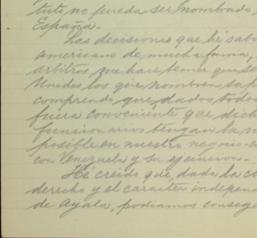 tuto no pueda ser nombrado,
España.
Las decisiones que he sabi
americano de mucha fama,
arbitros que hace temer que se
Unidos los que nombren, ta
comprende que, dados todos
fuera conveniente que dich
funcionarios tengan la m
posible en nuestro negocio
con Venezuela y su ejecucion.
Hé creido que, dado la c
derecho y el caracter independ
de Ayala, podiamos conseg